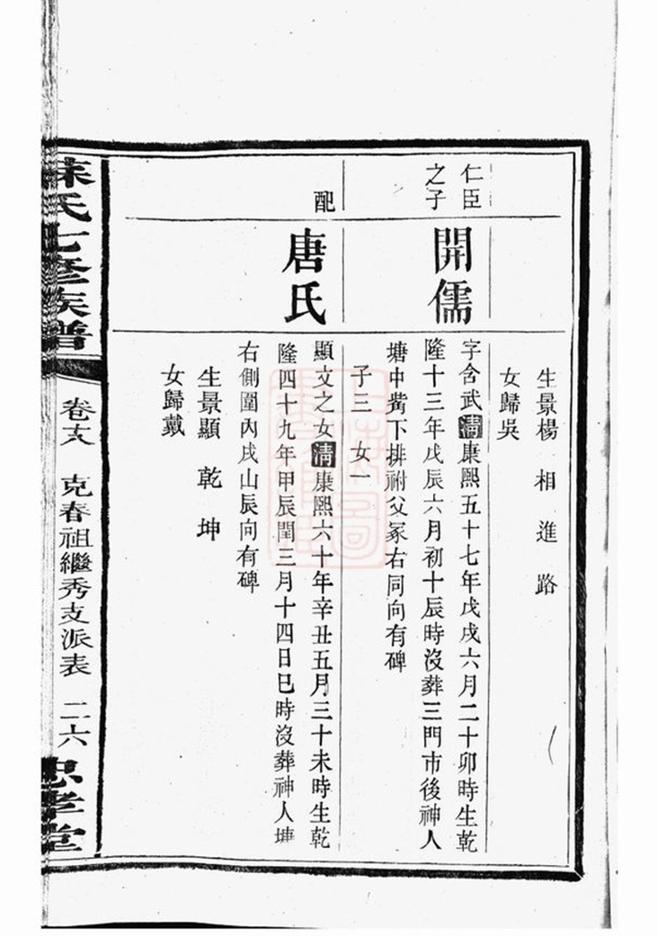 生景楊 相 進 路
女歸吳
仁臣
之子
開儒
字含武清康熙五十七年戊戌六月二十卯時生乾
隆十三年戊辰六月初十辰時沒葬三門市後神人
塘中觜下排祔父冢右同向有碑
子三 女一
配
唐氏
顯文之女清康熙六十年辛丑五月三十未時生乾
隆四十九年甲辰閏三月十四日巳時沒葬神人塘
右側圍內戌山辰向有碑
生景顯 乾 坤
女歸戴
氏七修族譜
克春祖繼秀支派表
二六
忠孝堂